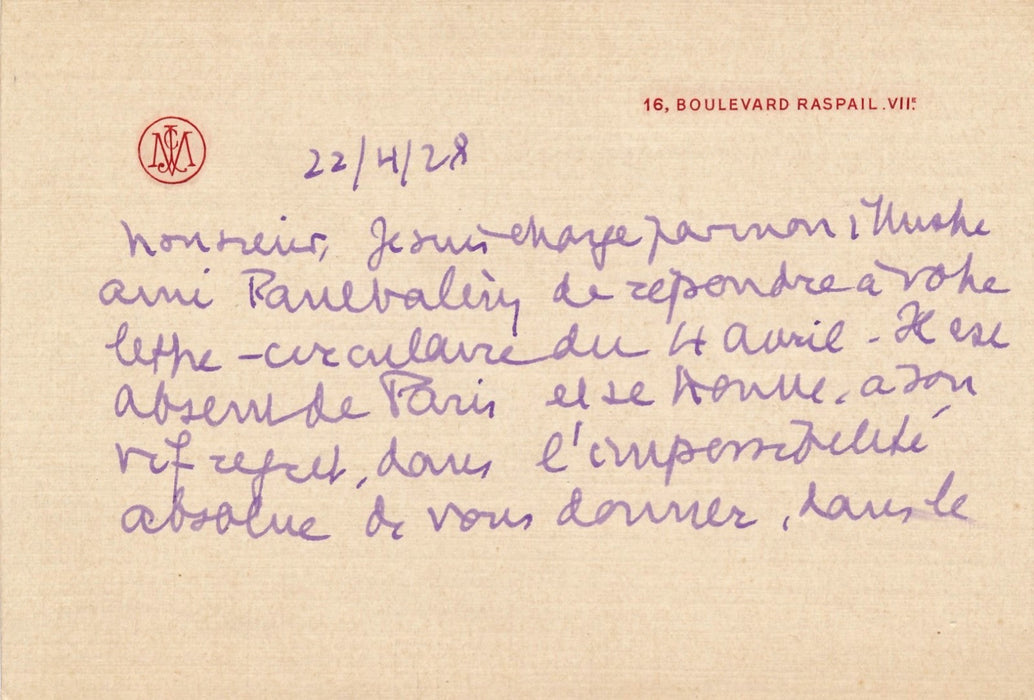 16, BOULEVARD RASPAIL. VIIe
22/4/28
Monsieur, Je suis chargé par mon illustre
ami Paul Valéry de répondre à votre
lettre-circulaire du 4 avril - Il est
absent de Paris et se trouve, à son
vif regret, dans l'impossibilité
absolue de vous donner, dans le